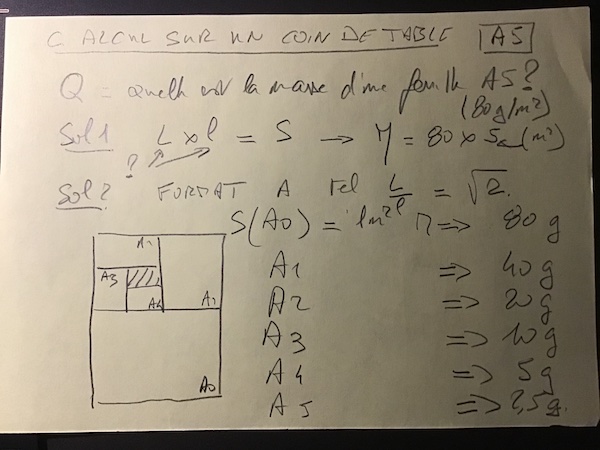 CALCUL SUR UN COIN DE TABLE A5
Q = quelle est la masse d'une feuille A5 ?
(80g/m²)
Sol 1 L x l = S → M = 80 x S en (m²)
?
Sol 2 FORMAT A tel L/l = √2.
S(A0) = 1m² M => 80 g
A1 => 40 g
A2 => 20 g
A3 => 10 g
A4 => 5 g
A5 => 2,5 g.
A1
A3
A4
A2
A0